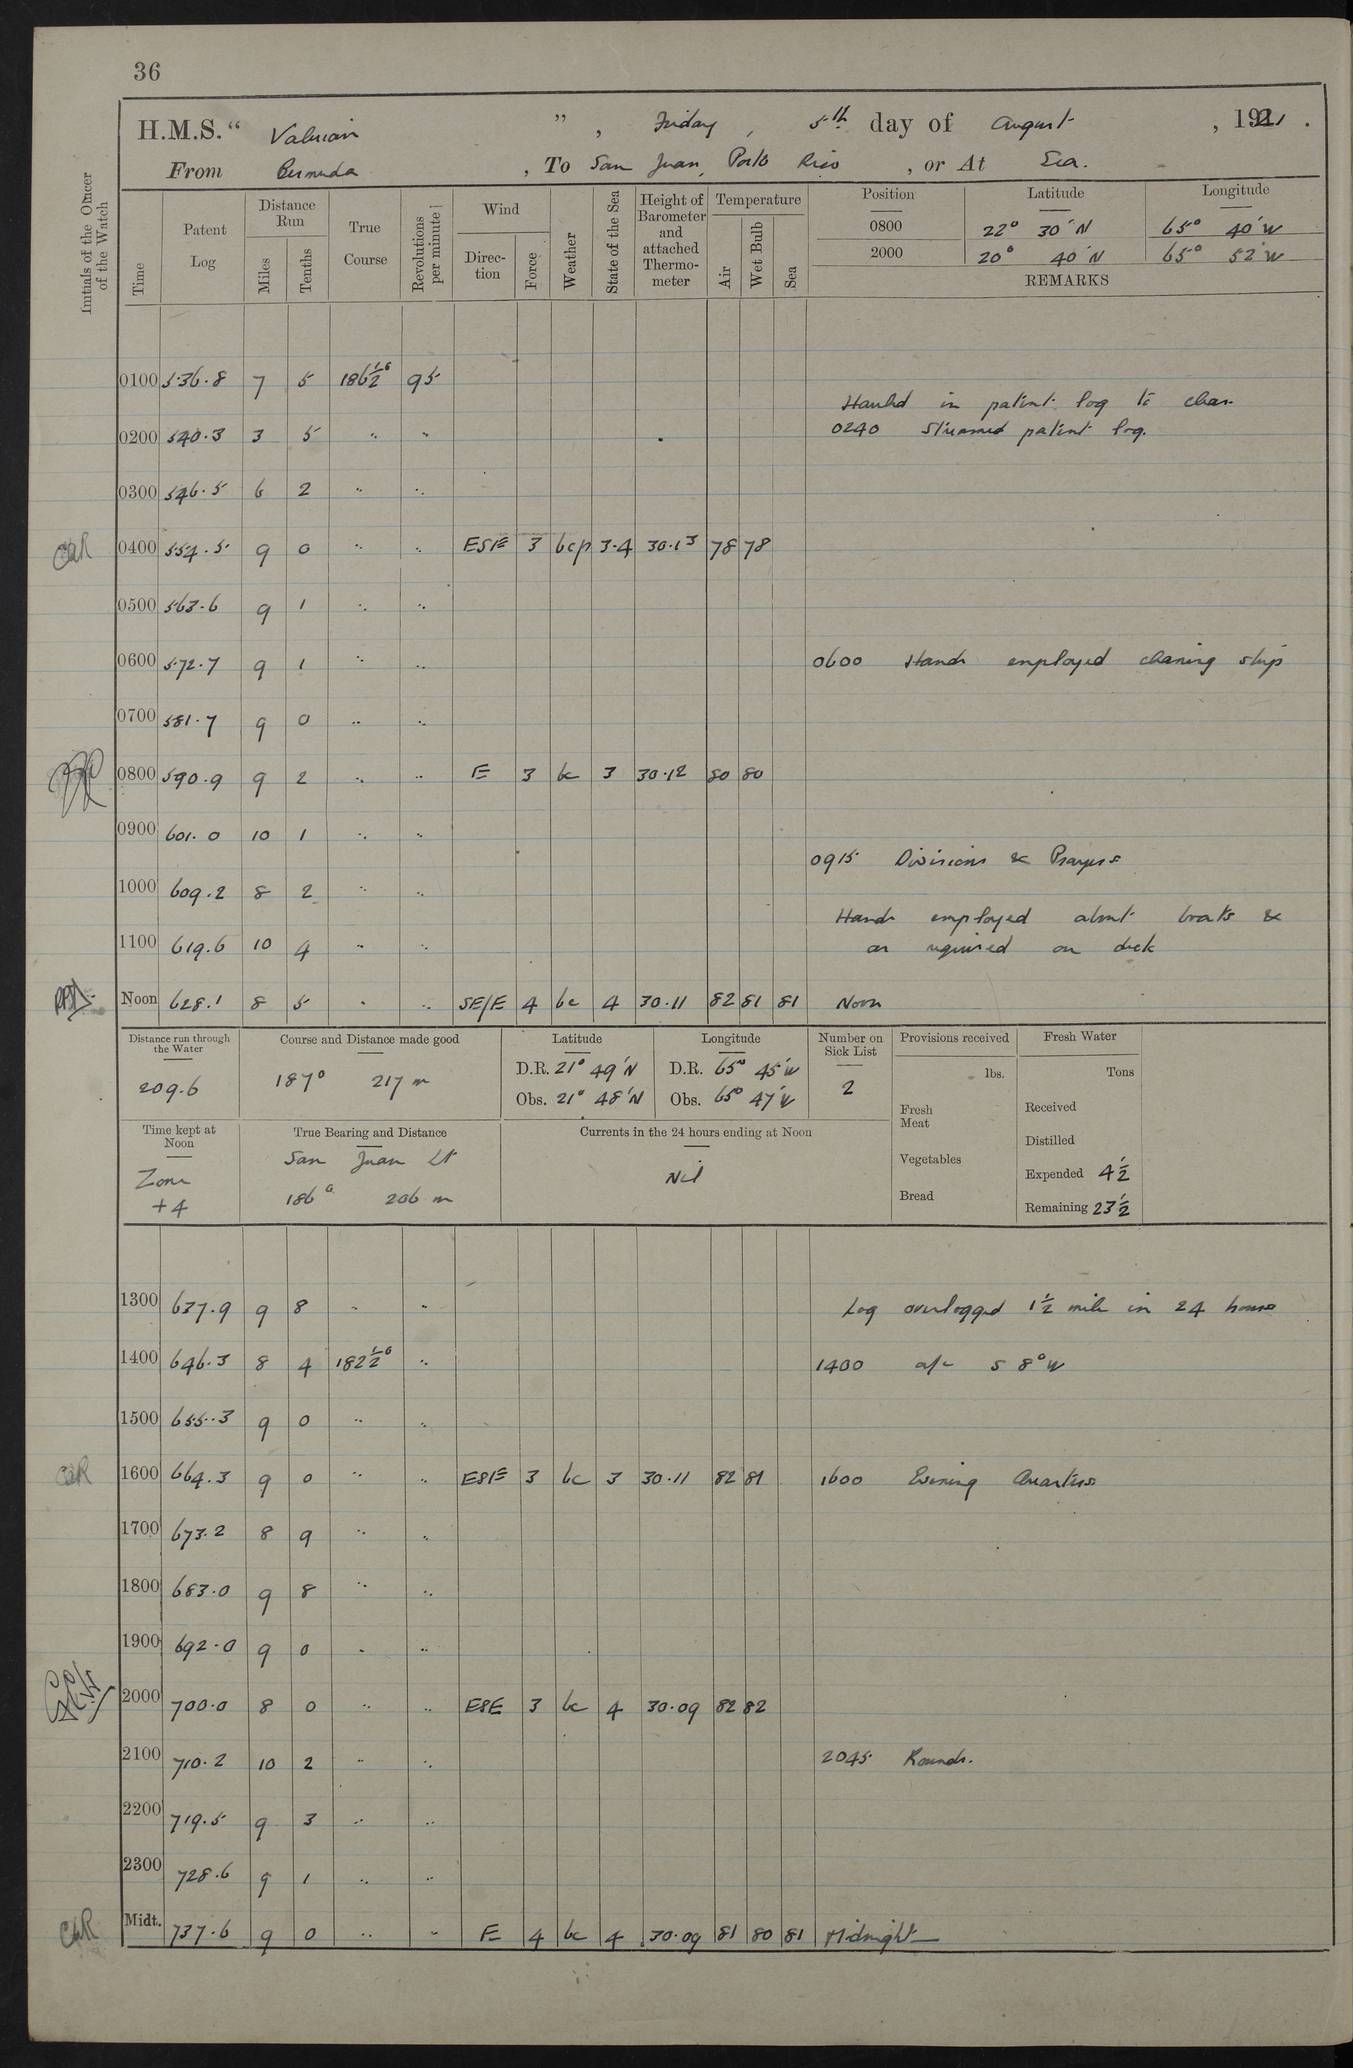 36
H.M.S. " Valerian ", Friday, 5th day of August, 1921.
From Bermuda, To San Juan, Porto Rico, or At Sea.
Initials of the Officer of the Watch
Time Patent Log Distance Run Miles Tenths True Course Revolutions per minute Wind Direction Force Weather State of the Sea Height of Barometer and attached Thermometer Temperature Air Wet Bulb Sea Position Latitude Longitude
0800 22° 30'N 65° 40'W
2000 20° 40'N 65° 52'W
REMARKS
0100 536.8 7 5 186½° 95
Hauled in patent log to clear
0200 540.3 3 5 " " 0240 Streamed patent log.
0300 546.5 6 2 " "
0400 554.5 9 0 " " ESE 3 bcp 3.4 30.13 78 78
0500 563.6 9 1 " "
0600 572.7 9 1 " " 0600 Hands employed cleaning ship
0700 581.7 9 0 " "
0800 590.9 9 2 " " E 3 bc 3 30.12 80 80
0900 601.0 10 1 " "
0915 Divisions & Prayers
1000 609.2 8 2 " "
Hands employed about boats &
1100 619.6 10 4 " " as required on deck
Noon 628.1 8 5 " " SE/E 4 bc 4 30.11 82 81 81 Noon
Distance run through the Water Course and Distance made good Latitude Longitude Number on Sick List Provisions received Fresh Water
209.6 187° 217 m D.R. 21° 49'N D.R. 65° 45'W 2 lbs. Tons
Obs. 21° 48'N Obs. 65° 47'W
Fresh Meat Received
Time kept at Noon True Bearing and Distance Currents in the 24 hours ending at Noon Distilled
Zone +4 San Juan Lt 186° 206 m Nil Vegetables Expended 4½
Bread Remaining 23½
1300 637.9 9 8 " " Log overlogged 1½ mile in 24 hours
1400 646.3 8 4 182½° " 1400 a/c S 8° W
1500 655.3 9 0 " "
1600 664.3 9 0 " " ESE 3 bc 3 30.11 82 81 1600 Evening Quarters
1700 673.2 8 9 " "
1800 683.0 9 8 " "
1900 692.0 9 0 " "
2000 700.0 8 0 " " ESE 3 bc 4 30.09 82 82
2100 710.2 10 2 " " 2045 Rounds.
2200 719.5 9 3 " "
2300 728.6 9 1 " "
Midt. 737.6 9 0 " " E 4 bc 4 30.09 81 80 81 Midnight